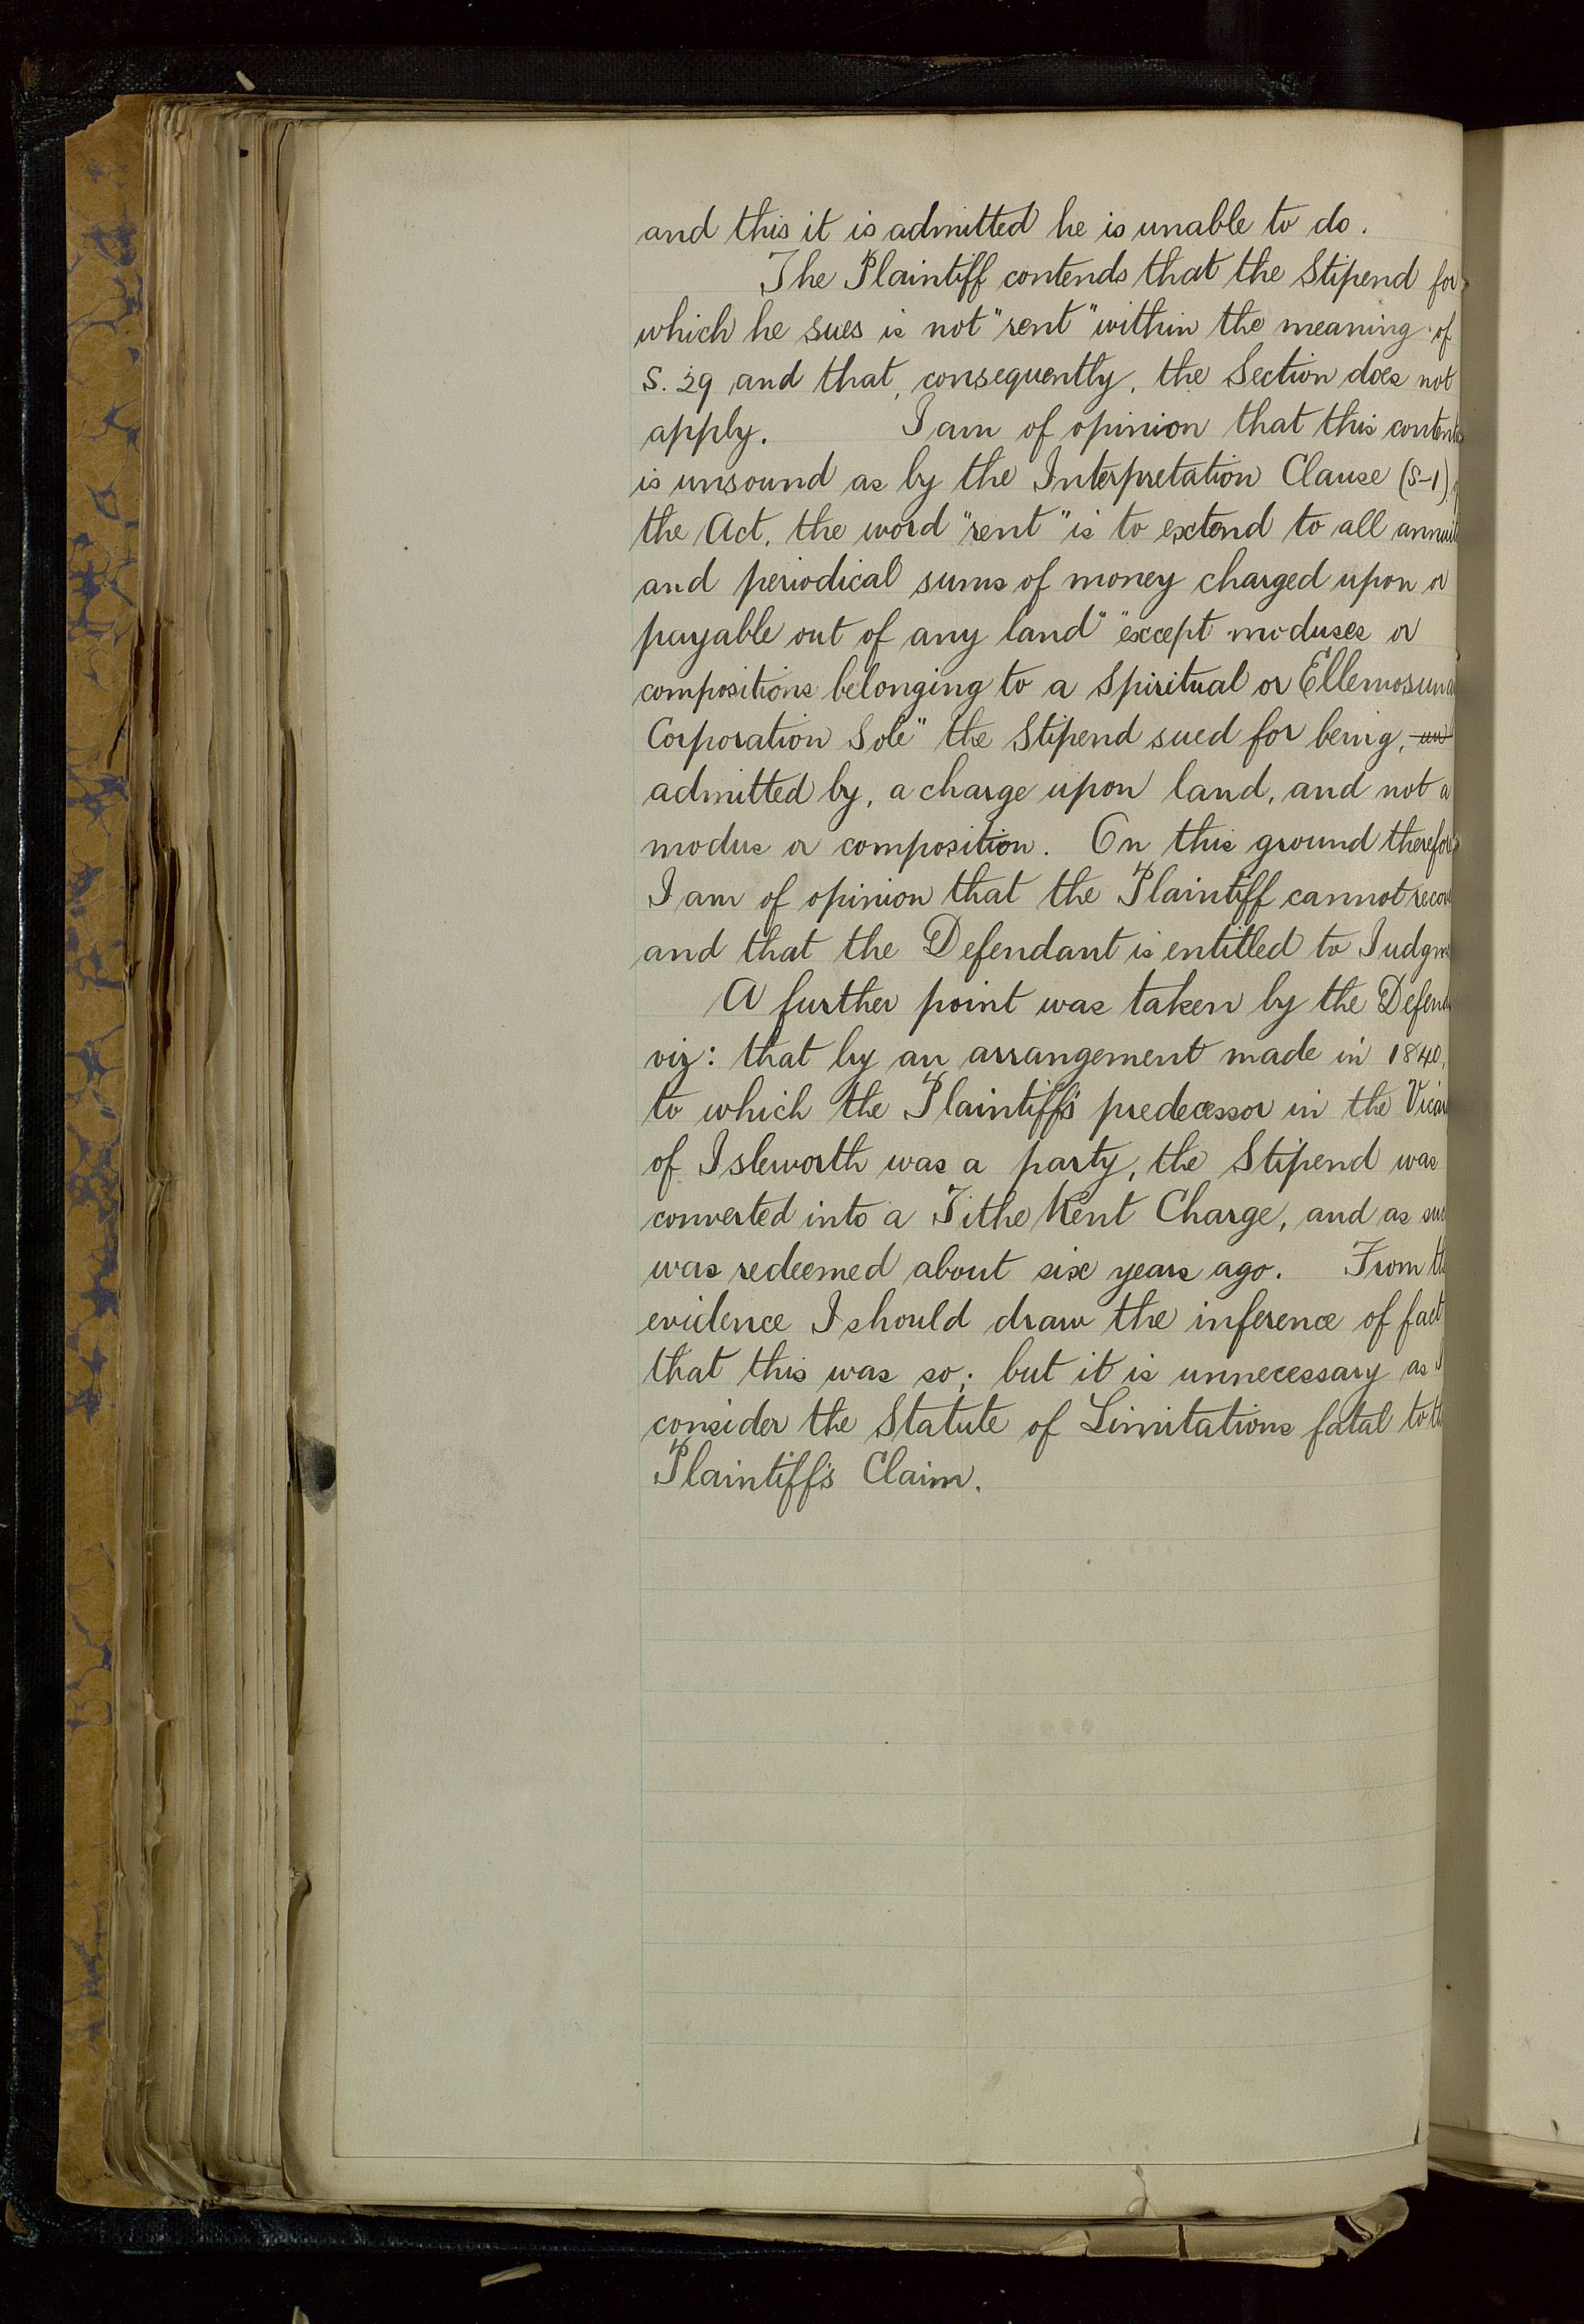 and this it is admitted he is unable to do.
The Plaintiff contends that the Stipend for
which he sues is not "rent" within the meaning of
S. 29 and that, consequently, the Section does not
apply. I am of opinion that this
is unsound as by the Interpretation Clause (S-1)
the Act, the word "rent" is to extend to all
and periodical sums of money charged upon or
payable out of any land" "except moduses or
compositions belonging to a Spiritual or
Corporation Sole" the Stipend sued for being,
admitted by, a charge upon land, and not a
modus or composition. On this ground
I am of opinion that the Plaintiff cannot
and that the Defendant is entitled to
A further point was taken by the
viz: that by an arrangement made in 1840,
to which the Plaintiff's predecessor in the
of Isleworth was a party, the Stipend was
converted into a Tithe Rent Charge, and as
was redeemed about six years ago. From
evidence I should draw the inference of fact
that this was so; but it is unnecessary as I
consider the Statute of Limitations fatal to
Plaintiff's Claim.